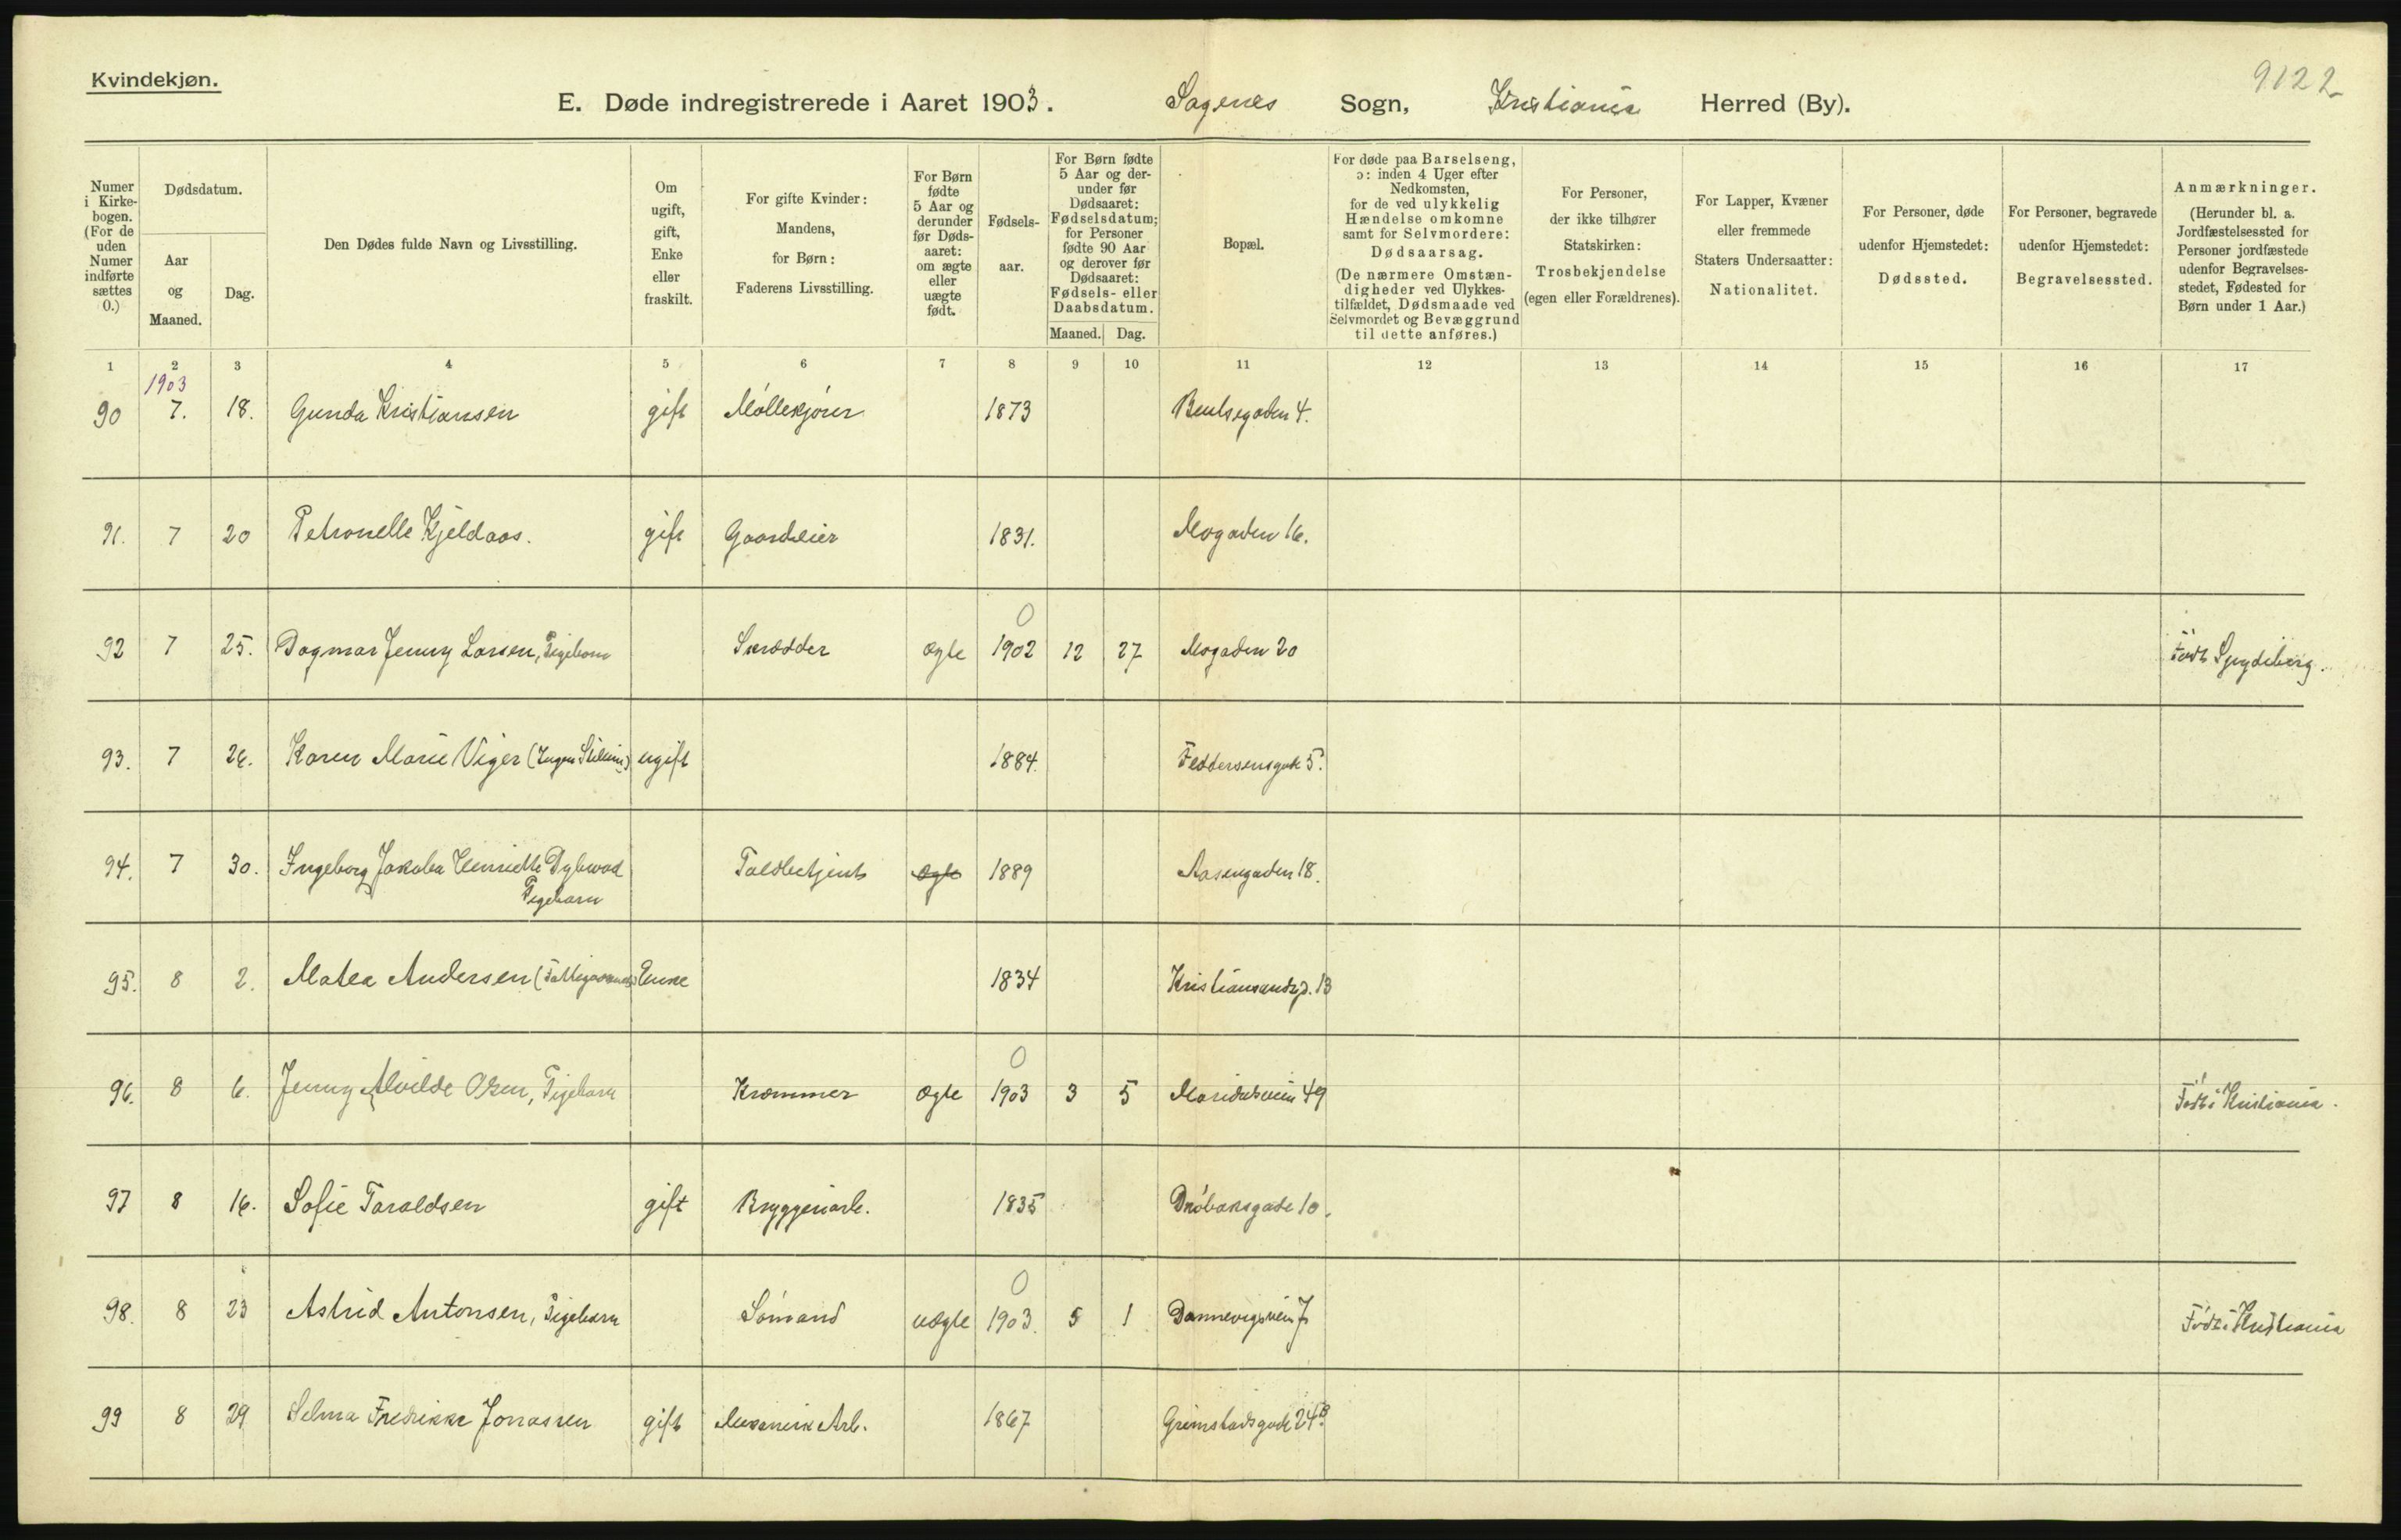 Kvindekjøn.
9122
E. Døde indregistrerede i Aaret 1903. Sagenes Sogn, Kristiania Herred (By).
Numer i Kirkebogen. (For de uden Numer indførte sættes 0.)
Dødsdatum.
Aar og Maaned.
Dag.
Den Dødes fulde Navn og Livsstilling.
Om ugift, gift, Enke eller fraskilt.
For gifte Kvinder: Mandens, for Børn: Faderens Livsstilling.
For Børn fødte 5 Aar og derunder før Dødsaaret: om ægte eller uægte født.
Fødselsaar.
For Børn fødte 5 Aar og derunder før Dødsaaret: Fødselsdatum; for Personer fødte 90 Aar og derover før Dødsaaret: Fødsels- eller Daabsdatum.
Maaned. Dag.
Bopæl.
For døde paa Barselseng, ɔ: inden 4 Uger efter Nedkomsten, for de ved ulykkelig Hændelse omkomne samt for Selvmordere: Dødsaarsag. (De nærmere Omstændigheder ved Ulykkestilfældet, Dødsmaade ved Selvmordet og Bevæggrund til dette anføres.)
For Personer, der ikke tilhører Statskirken: Trosbekjendelse (egen eller Forældrenes).
For Lapper, Kvæner eller fremmede Staters Undersaatter: Nationalitet.
For Personer, døde udenfor Hjemstedet: Dødssted.
For Personer, begravede udenfor Hjemstedet: Begravelsessted.
Anmærkninger. (Herunder bl. a. Jordfæstelsessted for Personer jordfæstede udenfor Begravelsesstedet, Fødested for Børn under 1 Aar.)
1 2 3 4 5 6 7 8 9 10 11 12 13 14 15 16 17
1903
90 7. 18. Gunda Kristiansen gift Møllekjører 1873 Bentsegaden 4.
91. 7 20 Petronelle Kjeldaas. gift Gaardeier 1831. Mogaden 16.
0
92 7 25. Dagmar Jenny Larsen, Pigebarn Skrædder ægte 1902 12 27 Mogaden 20 Født Spydeberg.
93. 7 26. Karen Marie Viger (Ingen Stilling) ugift 1884. Feddersensgade 5.
94. 7 30. Ingeborg Jakoba Henriette Dybwad Toldbetjent ægte 1889 Aasengaden 18.
Pigebarn
95. 8 2. Matea Andersen (Fattigunderst) Enke 1834 Kristiansandsg. 13
0
96. 8 6. Jenny Alvilde Olsen, Pigebarn Kræmmer ægte 1903 3 5 Maridalsveien 49 Født i Kristiania.
97 8 16. Sofie Taraldsen gift Bryggeriarb. 1835 Drøbaksgade 10.
0
98. 8 23 Astrid Antonsen, Pigebarn Sømand uægte 1903. 5 1 Dannevigsveien 7 Født i Kristiania
99 8 29 Selma Fredrikke Jonassen gift Mekanisk Arb. 1867 Grimstadsgade 24B.